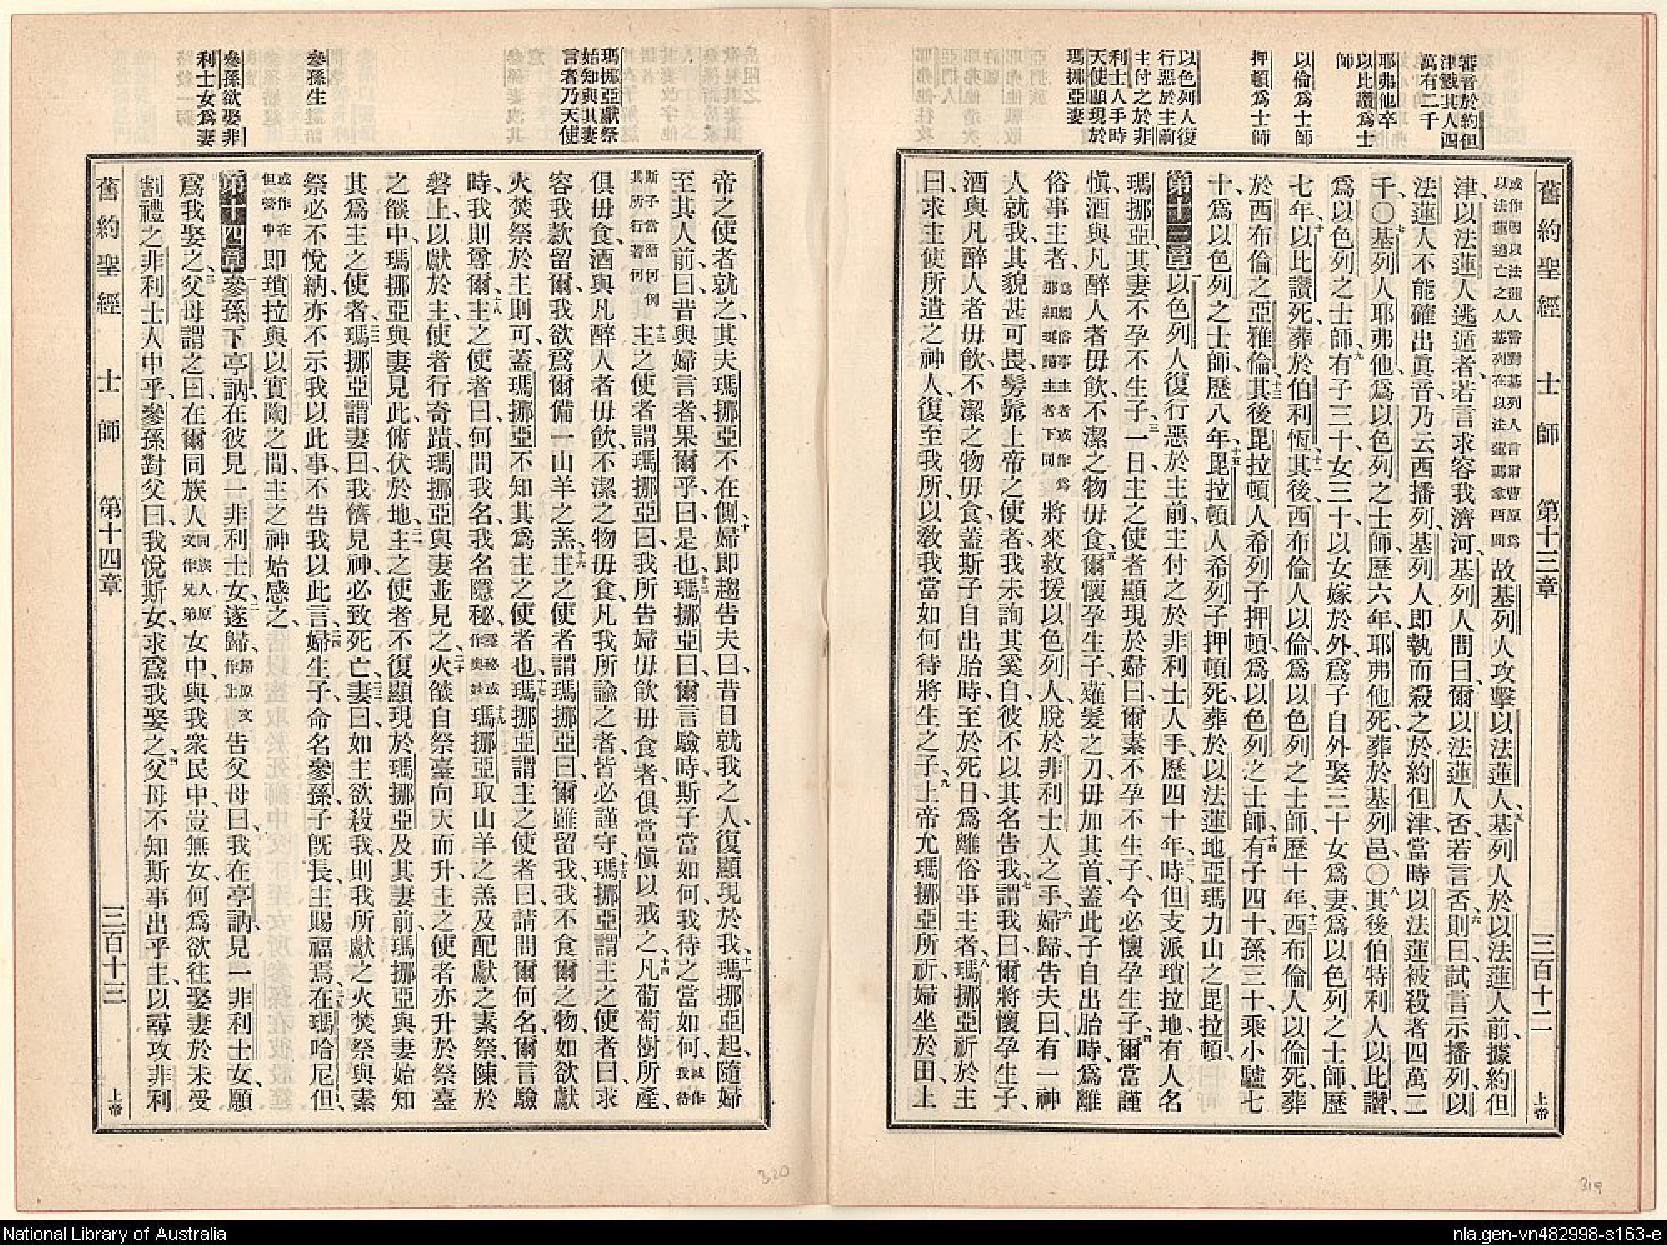 審音於約但
津戮其人四
萬有二千
耶弗他卒
以比讚爲士
師
以倫爲士師
押頓爲士師
以色列人復
行惡於主前
主付之於非
利士人手時
天使顯現於
瑪挪亞妻
舊約聖經 士師 第十三章 三百十二 上帝
故基列人攻擊以法蓮人、基列人於以法蓮人前、據約但
津、以法蓮人逃遁者、若言求容我濟河、基列人問曰、爾以法蓮人否、若言否、則曰、試言示播列、以
法蓮人不能確出眞音、乃云西播列、基列人即執而殺之於約但津、當時以法蓮被殺者四萬二
千、○基列人耶弗他、爲以色列之士師、歷六年、耶弗他死、葬於基列邑、○其後伯特利人以比讚
爲以色列之士師、有子三十、女三十、以女嫁於外、爲子自外娶三十女爲妻、爲以色列之士師、歷
七年、以比讚死、葬於伯利恆、其後西布倫人以倫、爲以色列之士師、歷十年、西布倫人以倫死、葬
於西布倫之亞雅倫、其後毘拉頓人希列子押頓、爲以色列之士師、有子四十、孫三十、乘小驢七
十、爲以色列之士師、歷八年、毘拉頓人希列子押頓死、葬於以法蓮地、亞瑪力山之毘拉頓、
第十三章 以色列人復行惡於主前、主付之於非利士人手、歷四十年、時但支派瑣拉地有人名
瑪挪亞、其妻不孕不生子、一日主之使者顯現於婦曰、爾素不孕不生子、今必懷孕生子、爾當謹
愼、酒與凡醉人者毋飲、不潔之物毋食、爾懷孕生子、薙髮之刀毋加其首、蓋此子自出胎時、爲離
俗事主者、將來救援以色列人、脫於非利士人之手、婦歸告夫曰、有一神
人就我、其貌甚可畏、髣髴上帝之使者、我未詢其奚自、彼不以其名告我、謂我曰、爾將懷孕生子、
酒與凡醉人者毋飲、不潔之物毋食、蓋斯子自出胎時、至於死日、爲離俗事主者、瑪挪亞祈於主
曰、求主使所遣之神人、復至我所、以敎我當如何待將生之子、上帝允瑪挪亞所祈、婦坐於田、上
瑪挪亞獻祭
始知與其妻
言者乃天使
參孫生
參孫欲娶非
利士女爲妻
帝之使者就之、其夫瑪挪亞不在側、婦即趨告夫曰、昔日就我之人、復顯現於我、瑪挪亞起隨婦
至其人前曰、昔與婦言者、果爾乎、曰、是也、瑪挪亞曰、爾言驗時、斯子當如何、我待之當如何、
主之使者謂瑪挪亞曰、我所告婦毋飲毋食者、俱當愼以戒之、凡葡萄樹所產、
俱毋食、酒與凡醉人者毋飲、不潔之物毋食、凡我所諭之者、皆必謹守、瑪挪亞謂主之使者曰、求
容我款留爾、我欲爲爾備一山羊之羔、主之使者謂瑪挪亞曰、爾雖留我、我不食爾之物、如欲獻
火焚祭於主則可、蓋瑪挪亞不知其爲主之使者也、瑪挪亞謂主之使者曰、請問爾何名、爾言驗
時、我則尊爾、主之使者曰、何問我名、我名隱秘、瑪挪亞取山羊之羔及配獻之素祭、陳於
磐上、以獻於主、使者行奇蹟、瑪挪亞與妻並見之、火燄自祭臺向天而升、主之使者亦升於祭臺
之燄中、瑪挪亞與妻見此、俯伏於地、主之使者不復顯現於瑪挪亞及其妻前、瑪挪亞與妻始知
其爲主之使者、瑪挪亞謂妻曰、我儕見神必致死亡、妻曰、如主欲殺我、則我所獻之火焚祭與素
祭、必不悅納、亦不示我以此事、不告我以此言、婦生子、命名參孫、子旣長、主賜福焉、在瑪哈尼但、
或作在但營中 即瑣拉與以實陶之間、主之神始感之、
第十四章 參孫下亭訥、在彼見一非利士女、遂歸、告父母曰、我在亭訥見一非利士女、願
爲我娶之、父母謂之曰、在爾同族人女中、與我衆民中、豈無女、何爲欲往娶妻於未受
割禮之非利士人中乎、參孫對父曰、我悅斯女、求爲我娶之、父母不知斯事出乎主、以尋攻非利
舊約聖經 士師 第十四章 三百十三 上帝
320
319
National Library of Australia
nla.gen-vn482998-s163-e